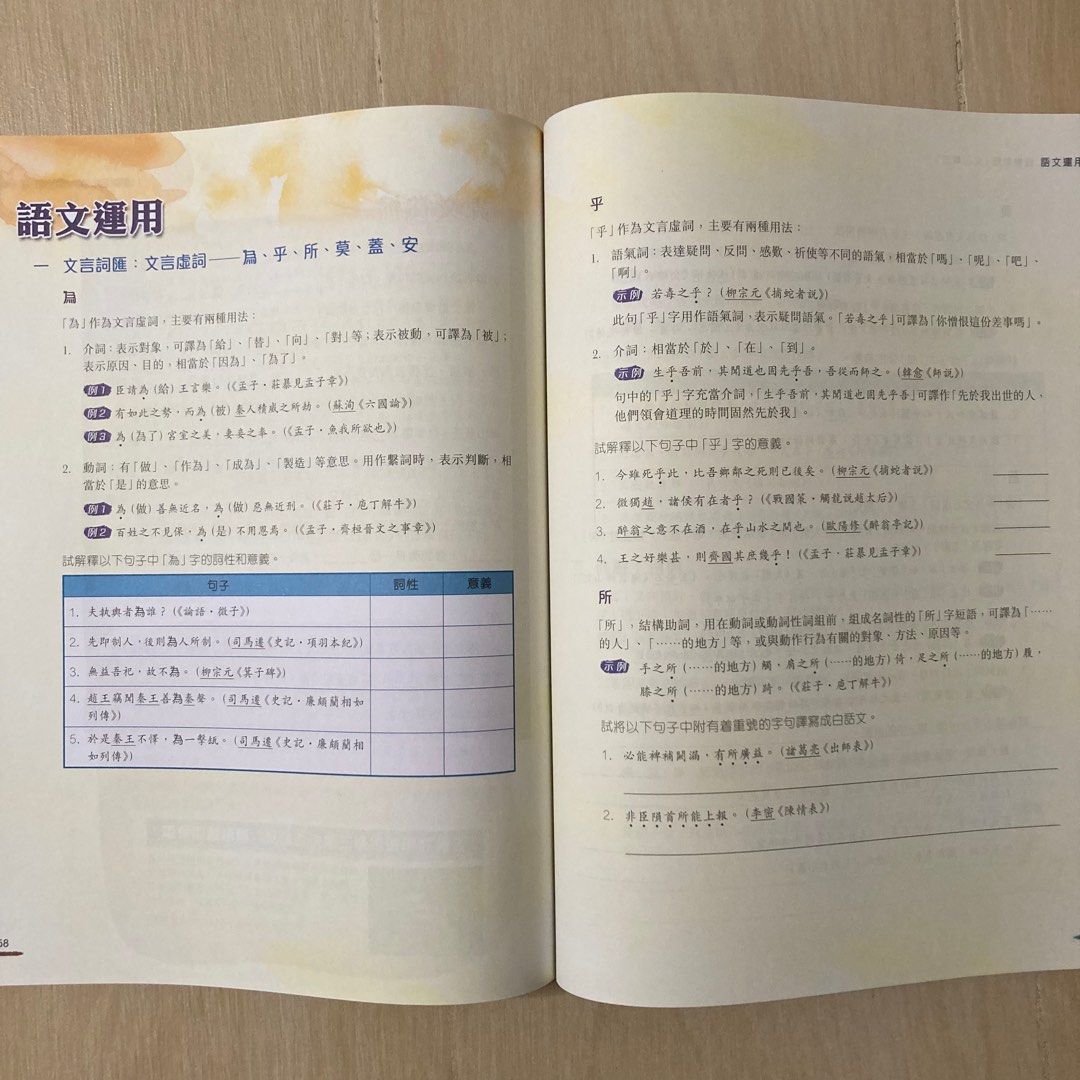 語文運用
一 文言詞匯：文言虛詞——為、乎、所、莫、蓋、安
為
「為」作為文言虛詞，主要有兩種用法：
1. 介詞：表示對象，可譯為「給」、「替」、「向」、「對」等；表示被動，可譯為「被」；
表示原因、目的，相當於「因為」、「為了」。
例1 臣請為（給）王言樂。（《孟子·莊暴見孟子章》）
例2 有如此之勢，而為（被）秦人積威之所劫。（蘇洵《六國論》）
例3 為（為了）宮室之美，妻妾之奉。（《孟子·魚我所欲也》）
2. 動詞：有「做」、「作為」、「成為」、「製造」等意思。用作繫詞時，表示判斷，相
當於「是」的意思。
例1 為（做）善無近名，為（做）惡無近刑。（《莊子·庖丁解牛》）
例2 百姓之不見保，為（是）不用恩焉。（《孟子·齊桓晉文之事章》）
試解釋以下句子中「為」字的詞性和意義。
句子 詞性 意義
1. 夫執輿者為誰？（《論語·微子》）
2. 先即制人，後則為人所制。（司馬遷《史記·項羽本紀》）
3. 無益吾祀，故不為。（柳宗元《箕子碑》）
4. 趙王竊聞秦王善為秦聲。（司馬遷《史記·廉頗藺相如
列傳》）
5. 於是秦王不懌，為一擊缻。（司馬遷《史記·廉頗藺相
如列傳》）
58
語文運用
乎
「乎」作為文言虛詞，主要有兩種用法：
1. 語氣詞：表達疑問、反問、感歎、祈使等不同的語氣，相當於「嗎」、「呢」、「吧」、
「啊」。
示例 若毒之乎？（柳宗元《捕蛇者說》）
此句「乎」字用作語氣詞，表示疑問語氣。「若毒之乎」可譯為「你憎恨這份差事嗎」。
2. 介詞：相當於「於」、「在」、「到」。
示例 生乎吾前，其聞道也固先乎吾，吾從而師之。（韓愈《師說》）
句中的「乎」字充當介詞，「生乎吾前，其聞道也固先乎吾」可譯作「先於我出世的人，
他們領會道理的時間固然先於我」。
試解釋以下句子中「乎」字的意義。
1. 今雖死乎此，比吾鄉鄰之死則已後矣。（柳宗元《捕蛇者說》）
2. 微獨趙，諸侯有在者乎？（《戰國策·觸龍說趙太后》）
3. 醉翁之意不在酒，在乎山水之間也。（歐陽修《醉翁亭記》）
4. 王之好樂甚，則齊國其庶幾乎！（《孟子·莊暴見孟子章》）
所
「所」，結構助詞，用在動詞或動詞性詞組前，組成名詞性的「所」字短語，可譯為「……
的人」、「……的地方」等，或與動作行為有關的對象、方法、原因等。
示例 手之所（……的地方）觸，肩之所（……的地方）倚，足之所（……的地方）履，
膝之所（……的地方）踦。（《莊子·庖丁解牛》）
試將以下句子中附有着重號的字句譯寫成白話文。
1. 必能裨補闕漏，有所廣益。（諸葛亮《出師表》）
2. 非臣隕首所能上報。（李密《陳情表》）